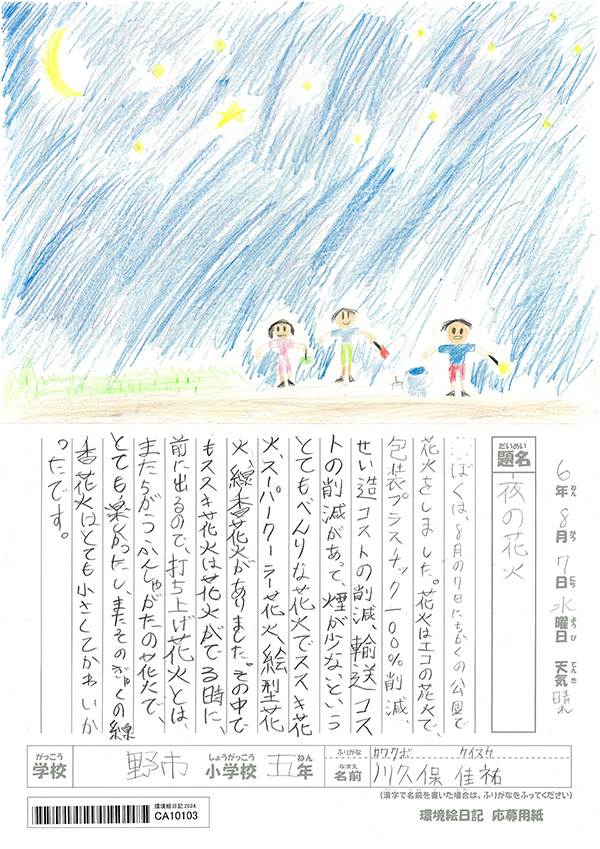 6年 8月 7日 水曜日 天気 晴れ
だいめい
題名 夜の花火
ぼくは、8月の7日にちかくの公園で
花火をしました。花火はエコの花火で、
包装プラスチック100%削減、
せい造コストの削減、輸送コス
トの削減があって、煙が少ないという
とてもべんりな花火でススキ花
火、スーパークーラー花火、絵型花
火、線香花火がありました。その中で
もススキ花火は花火がでる時に、
前に出るので、打ち上げ花火とは、
またちがうかんしゃがたの花火で、
とても楽しかったし、またそのぎゃくの線
香花火はとても小さくてかわいか
ったです。
がっこう しょうがっこう ねん
学校 野市 小学校 五年
ふりがな カワクボ ケイスケ
なまえ
名前 川久保 佳祐
(漢字で名前を書いた場合は、ふりがなをふってください)
環境絵日記 2024
CA10103
環境絵日記 応募用紙